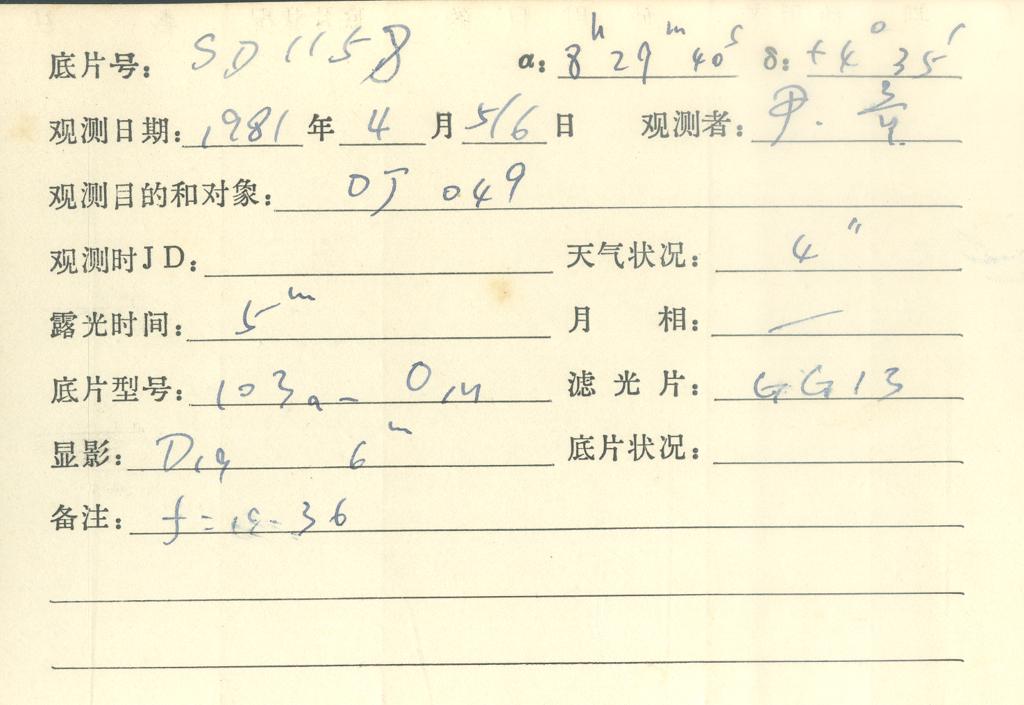 底片号: SD1158 α: 8h 29m 40s δ: +4° 35′
观测日期: 1981 年 4 月 5/6 日 观测者: 尹.
观测目的和对象: OJ 049
观测时JD: 天气状况: 4″
露光时间: 5m 月 相: —
底片型号: 103a-O 滤光片: GG13
显影: D19 6m 底片状况:
备注: f = 36